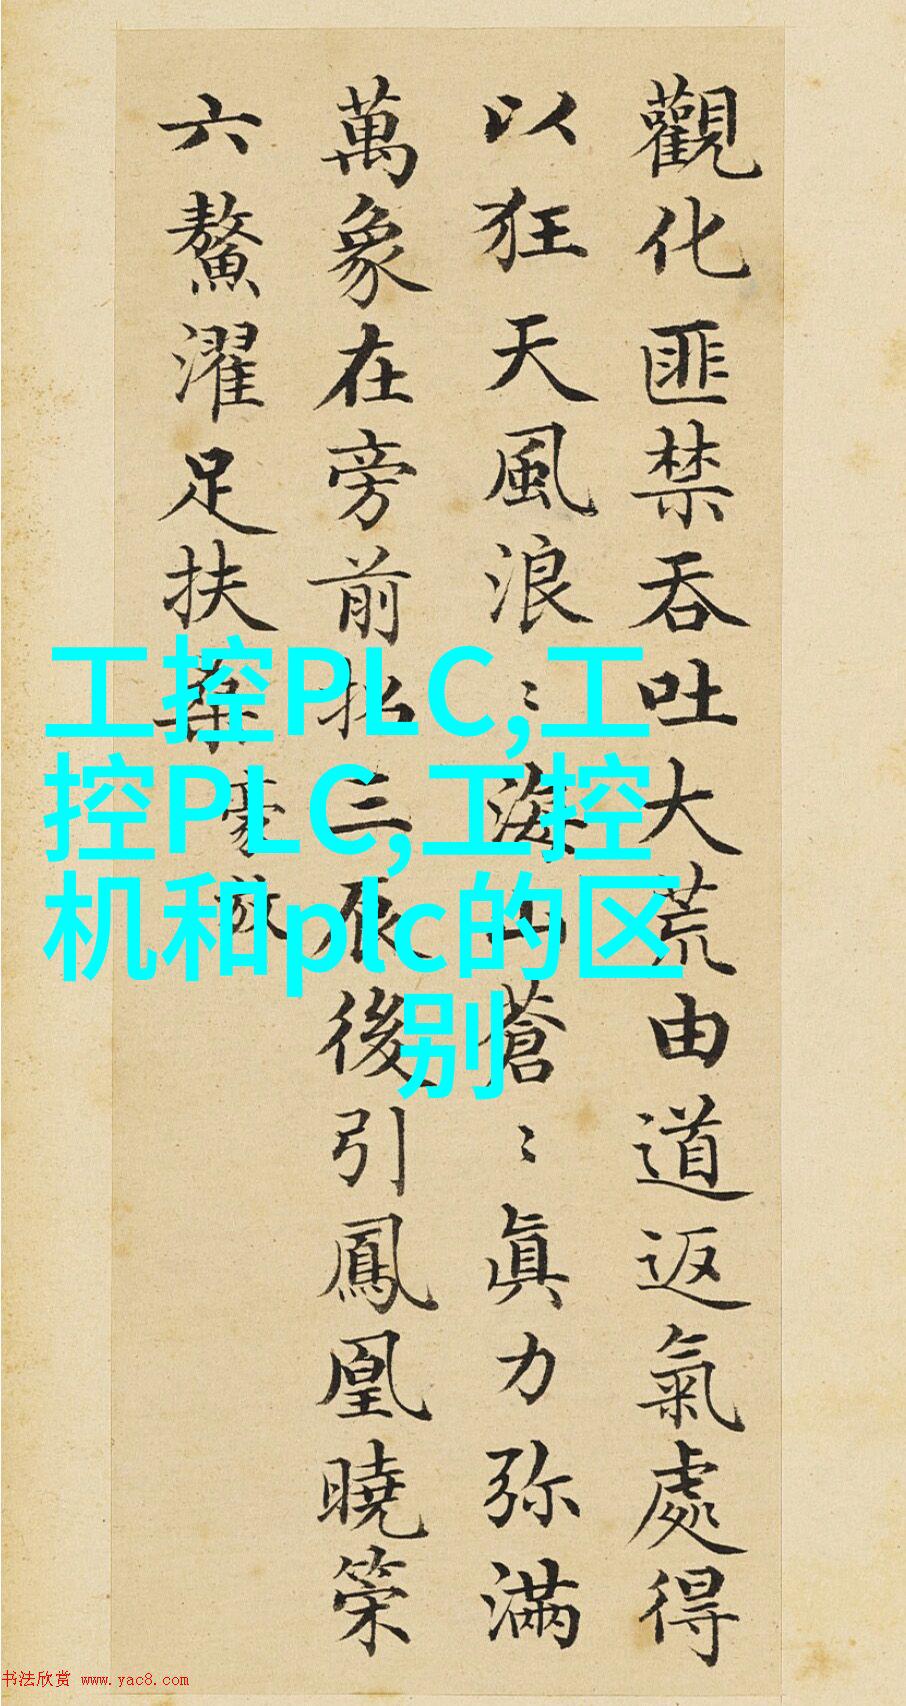 觀化匪禁吞吐大荒由道返氣處得
以狂天風浪〻海山蒼〻眞力弥滿
萬象在旁前招三辰後引鳳凰曉策
六鰲濯足扶桒
豪放
工控PLC,工
控PLC,工控
机和plc的区
别
书法欣赏 www.yac8.com